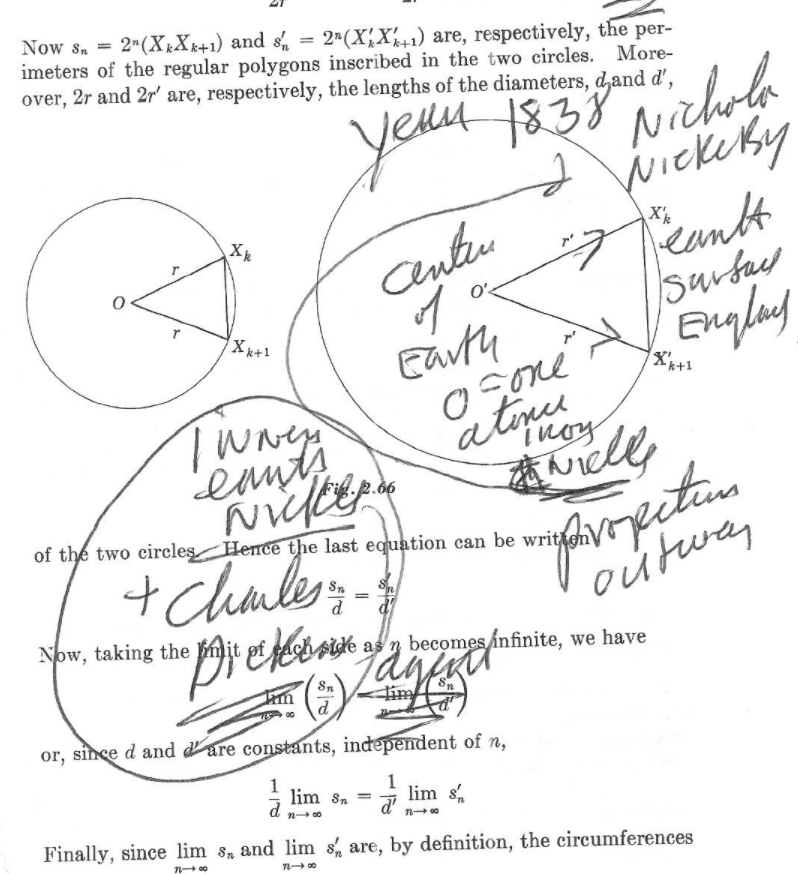 Now sₙ = 2ⁿ(XₖXₖ₊₁) and s′ₙ = 2ⁿ(X′ₖX′ₖ₊₁) are, respectively, the per-
imeters of the regular polygons inscribed in the two circles. More-
over, 2r and 2r′ are, respectively, the lengths of the diameters, d and d′,
year 1838
Nichola
Nickelby
Xₖ
r
O
r
Xₖ₊₁
X′ₖ
r′
O′
r′
X′ₖ₊₁
center
of
Earth
O = one
earth
surface
England
inner
earths
Nickel
iron
Fig. 2.66
projectus
outway
of the two circles. Hence the last equation can be written
+ Charles
Dickens
agent
sₙ/d = s′ₙ/d′
Now, taking the limit of each side as n becomes infinite, we have
lim n→∞ (sₙ/d) = lim n→∞ (s′ₙ/d′)
or, since d and d′ are constants, independent of n,
1/d lim n→∞ sₙ = 1/d′ lim n→∞ s′ₙ
Finally, since lim n→∞ sₙ and lim n→∞ s′ₙ are, by definition, the circumferences